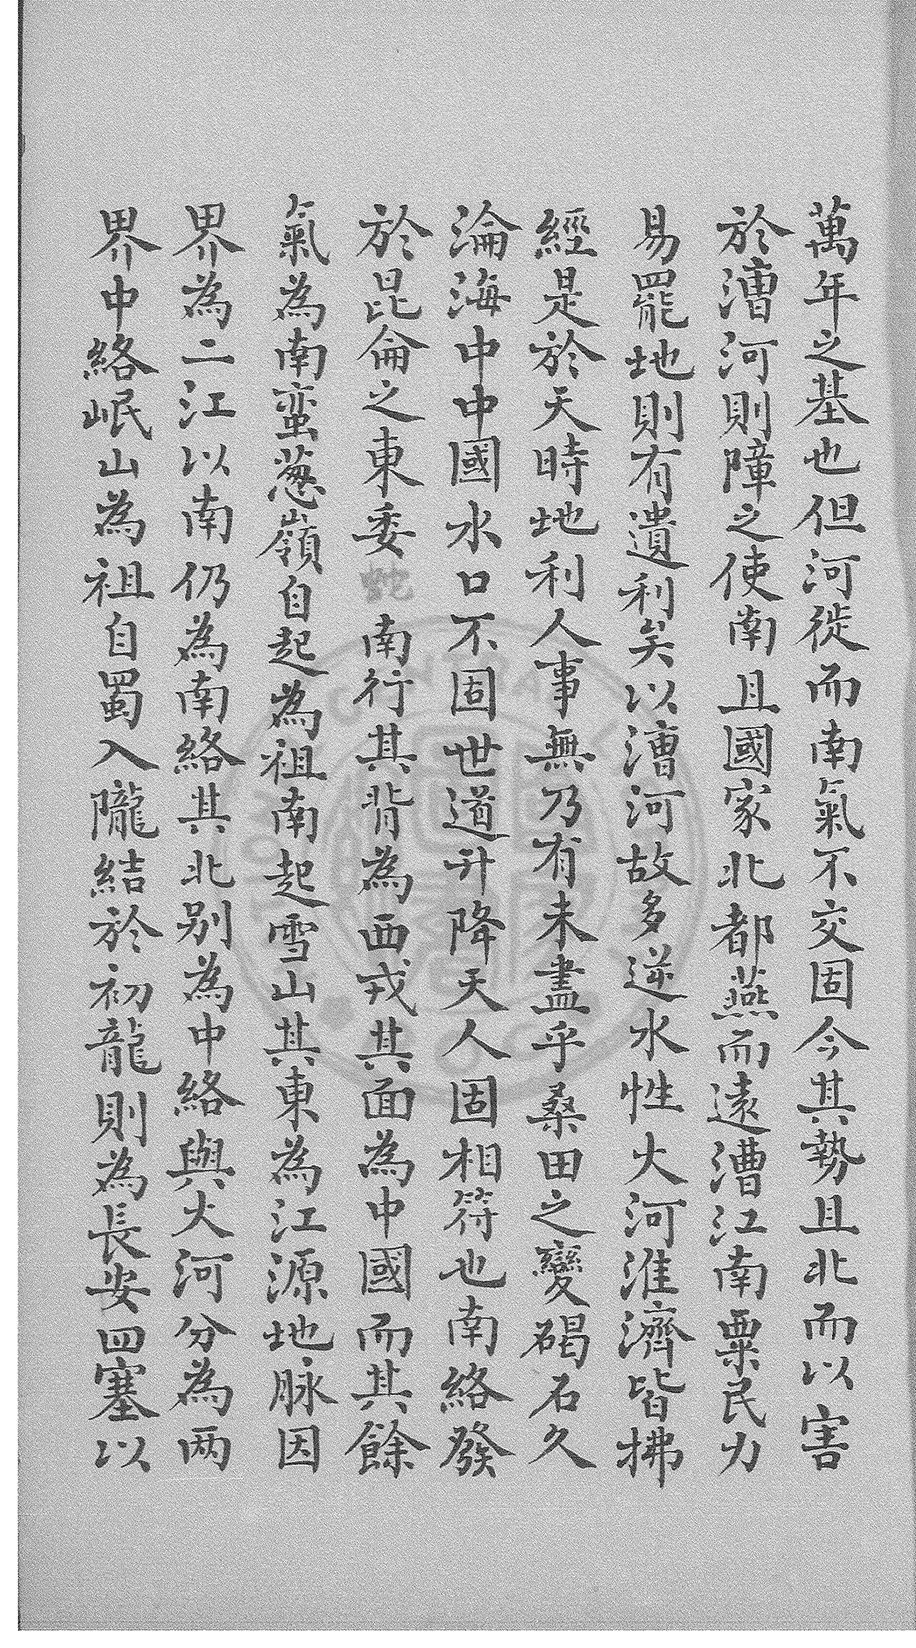 萬年之基也但河徙而南氣不交固今其勢且北而以害
於漕河則障之使南且國家北都燕而遠漕江南粟民力
易罷地則有遺利矣以漕河故多逆水性大河淮濟皆拂
經是於天時地利人事無乃有未盡乎桑田之變碣石久
淪海中中國水口不固世道升降天人固相符也南絡發
於昆侖之東委蛇南行其背為西戎其面為中國而其餘
氣為南蛮葱嶺自起為祖南起雪山其東為江源地脉因
界為二江以南仍為南絡其北别為中絡與大河分為两
界中絡岷山為祖自蜀入隴結於初龍則為長安四塞以